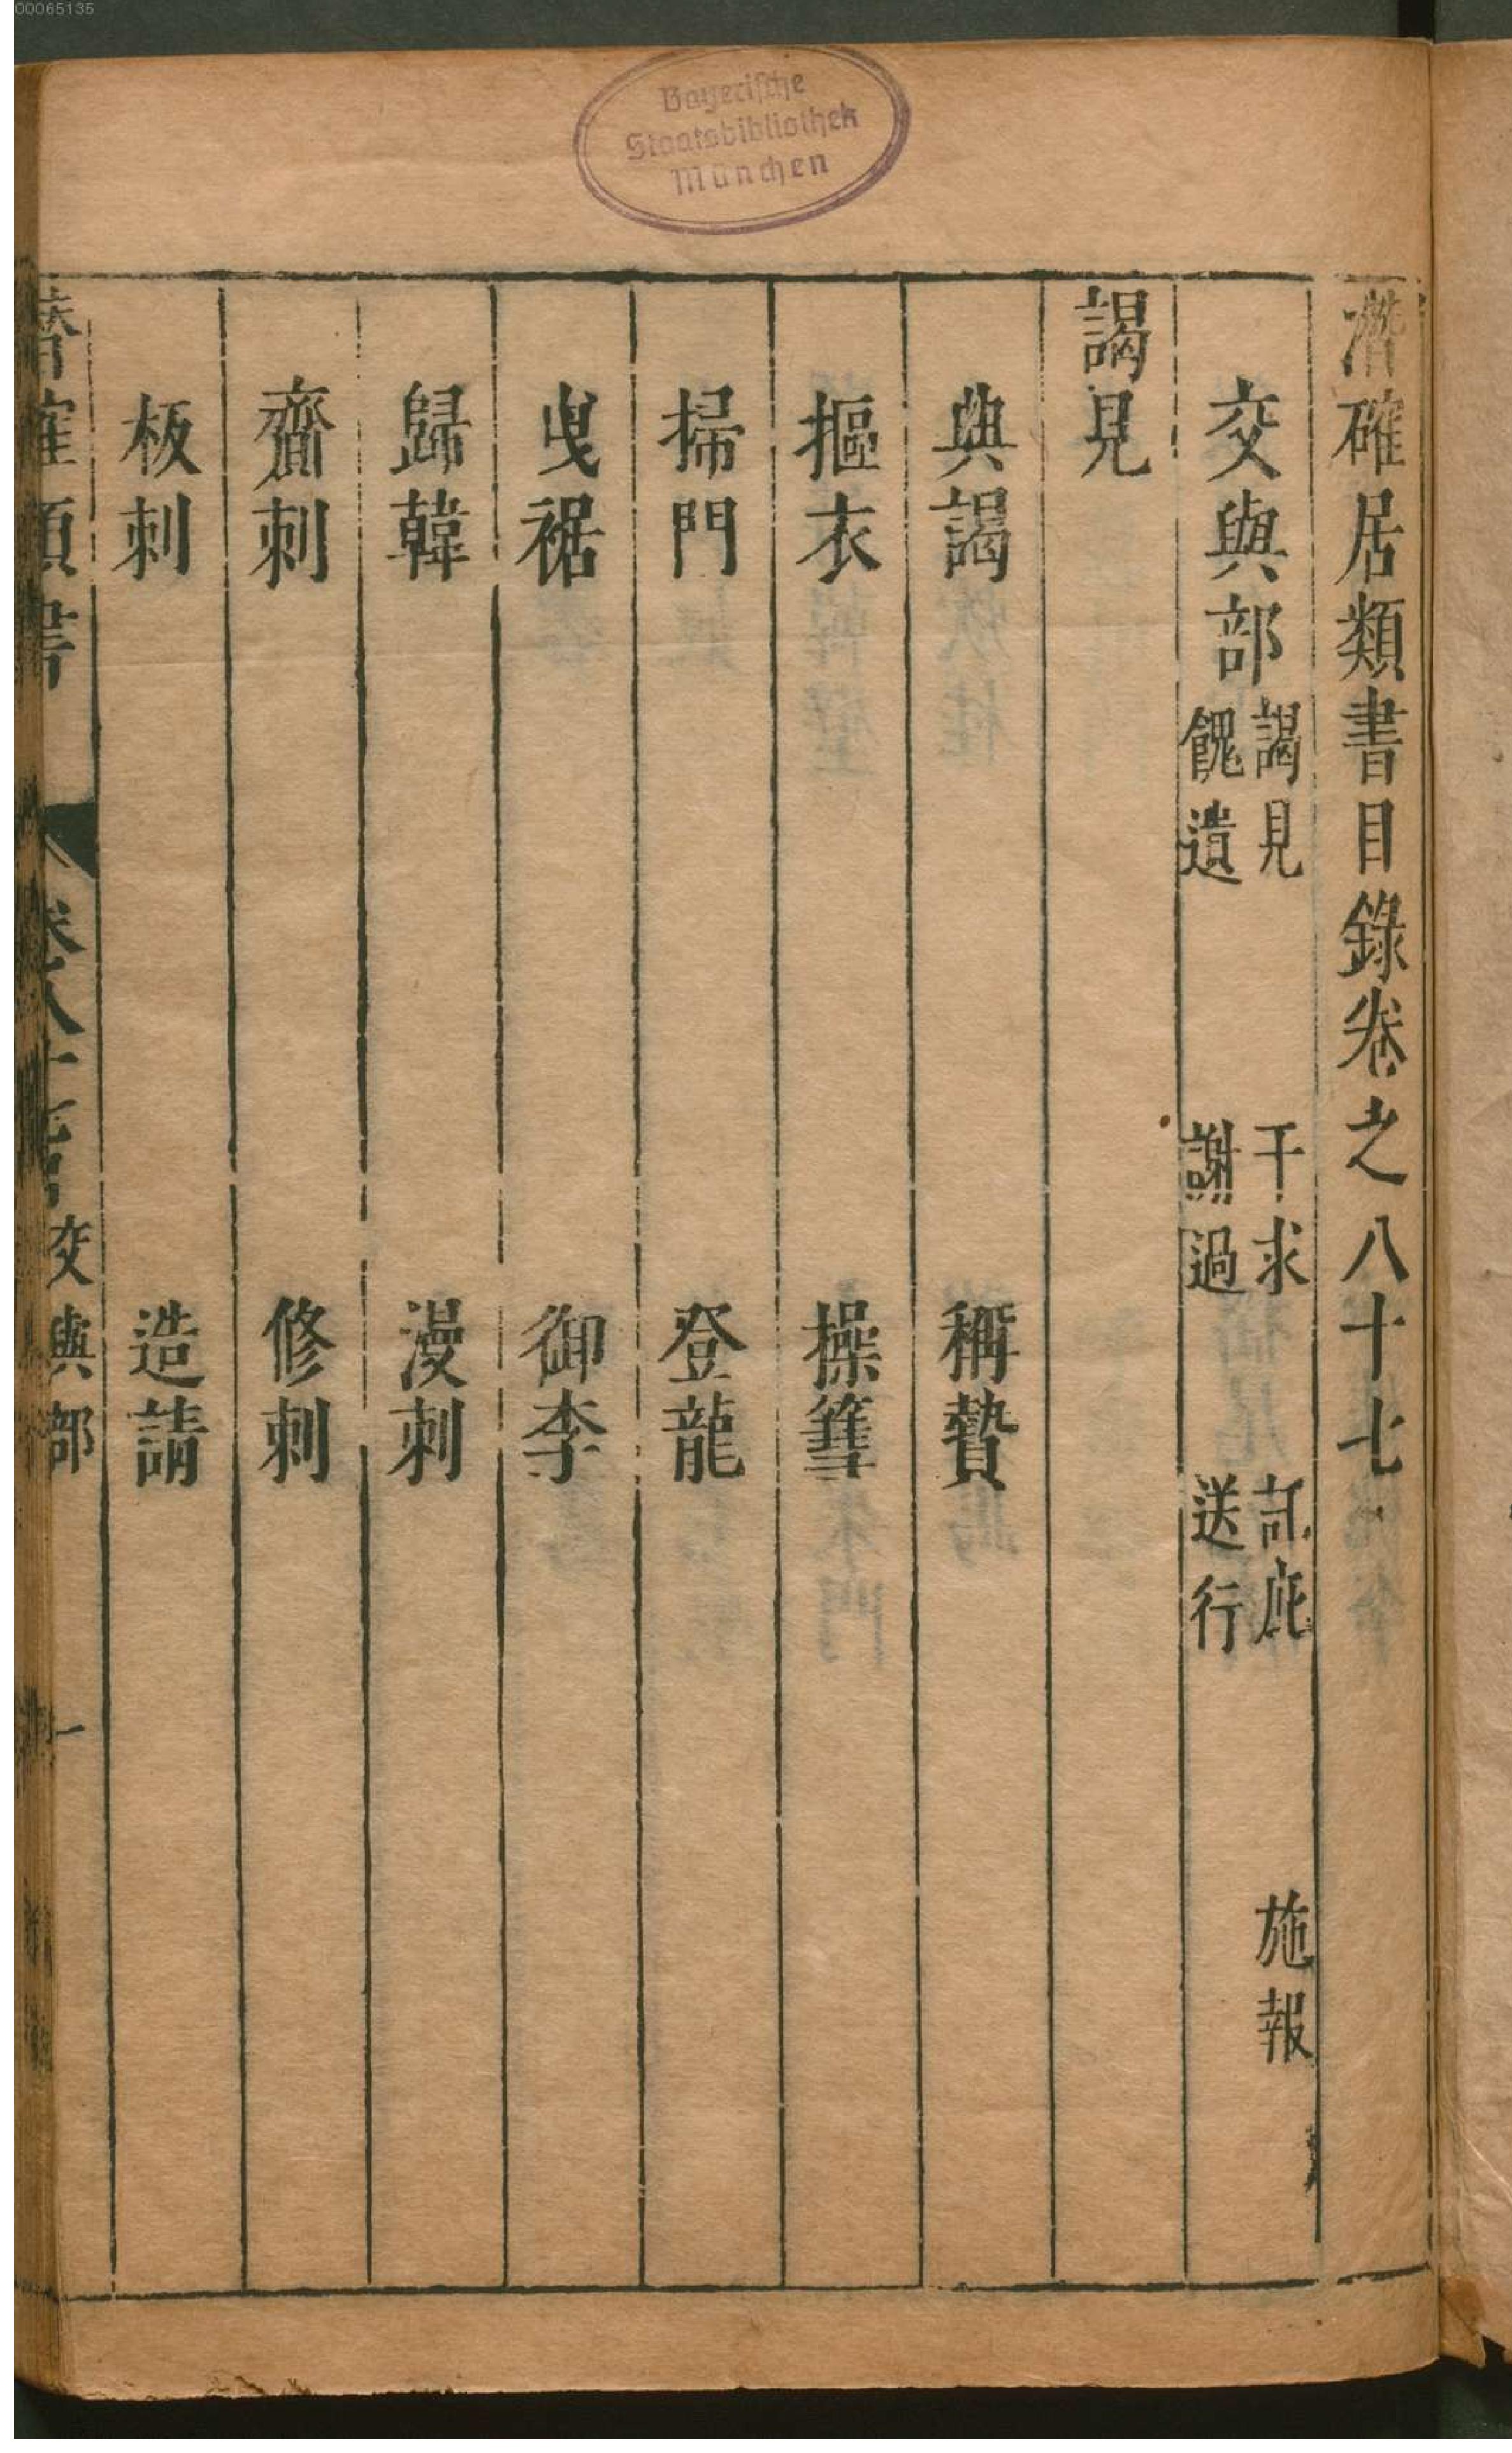 00065135
Bayerische
Staatsbibliothek
München
潛確居類書目錄卷之八十七
交與部 謁見 干求 託庇 施報
餽遺 謝過 送行
謁見
典謁 稱贄
摳衣 操篲
掃門 登龍
曳裾 御李
歸韓 漫刺
齎刺 修刺
板刺 造請
交與部 一